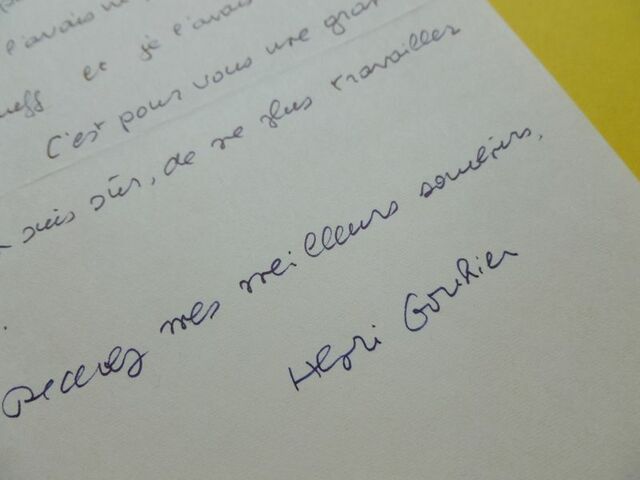 l'avais
et je l'avais
C'est pour vous une gran
suis sûr, de ne plus travailler
Recevez mes meilleurs souvenirs,
Henri Gouhier